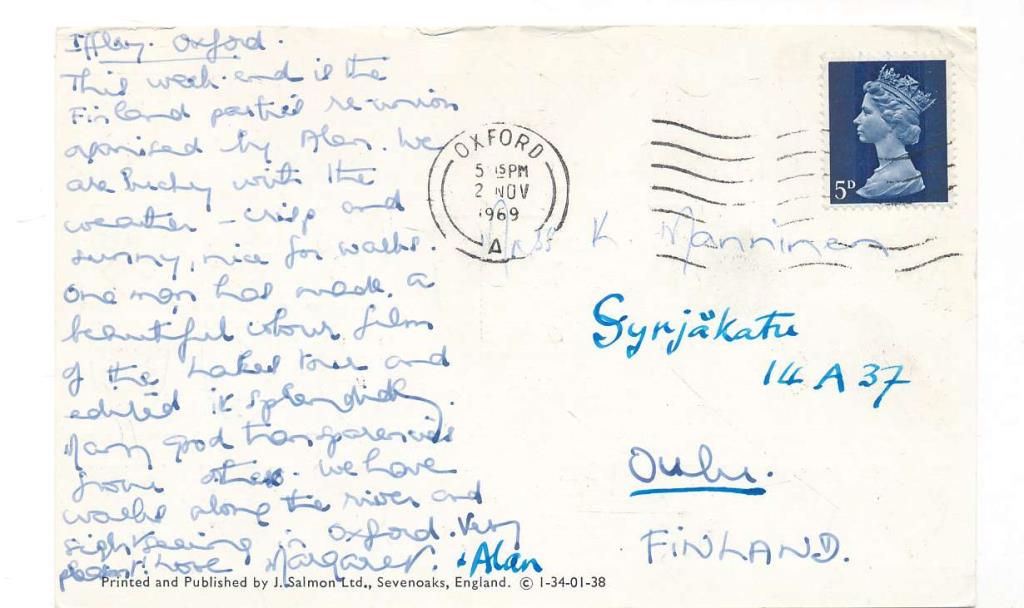 Iffley. Oxford.
This week-end is the
Finland parties re-union
organised by Alan. We
are lucky with the
weather - crisp and
sunny, nice for walks.
One man has made a
beautiful colour film
of the Lakes tour and
edited it splendidly.
Many good transparencies
from others. We have
walks along the river and
sightseeing in Oxford. Very
pleasant! Love Margaret. + Alan
Printed and Published by J. Salmon Ltd., Sevenoaks, England. © 1-34-01-38
OXFORD
5 15PM
2 NOV
1969
A
5D
K. Manninen
Syrjäkatu
14 A 37
Oulu.
FINLAND.